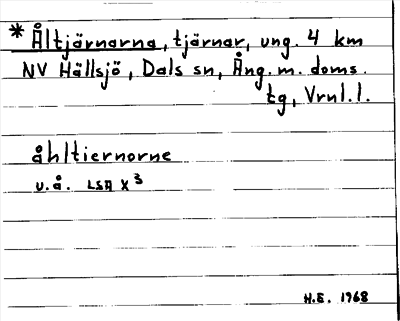 * Åltjärnarna, tjärnar, ung. 4 km
NV Hällsjö, Dals sn, Ång. m. doms.
tg, Vrnl.l.
åhltiernorne
u.å. LSA X³
H.E. 1968